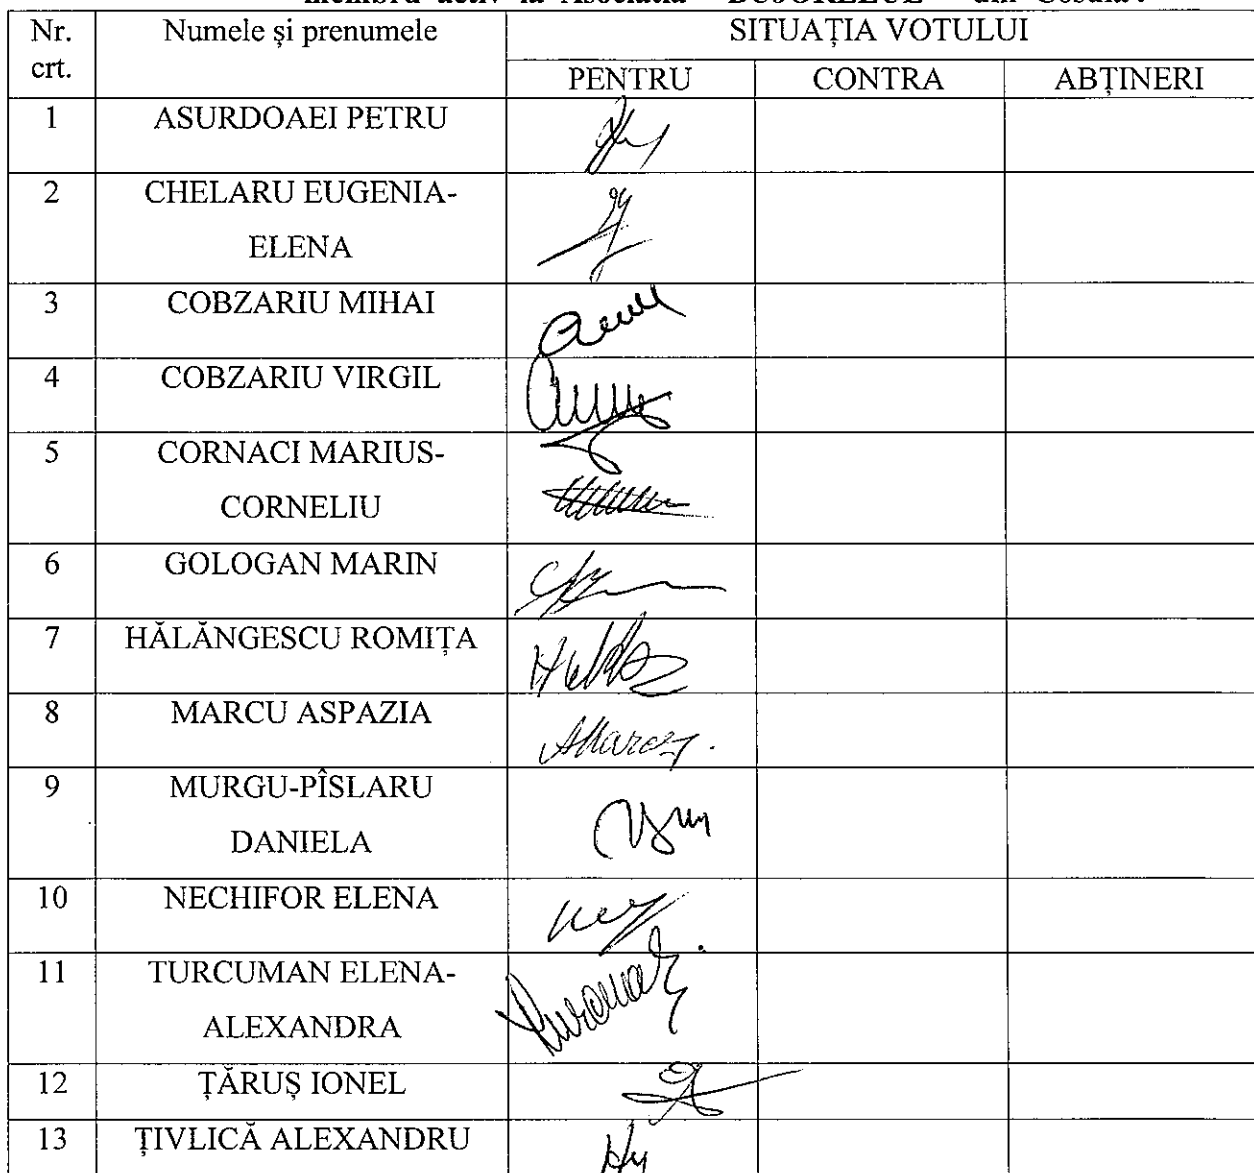 membru activ la Asociatia "BUJORELUL" din Cosula.
Nr. crt.
Numele și prenumele
SITUAȚIA VOTULUI
PENTRU CONTRA ABȚINERI
1 ASURDOAEI PETRU
2 CHELARU EUGENIA-
ELENA
3 COBZARIU MIHAI
4 COBZARIU VIRGIL
5 CORNACI MARIUS-
CORNELIU
6 GOLOGAN MARIN
7 HĂLĂNGESCU ROMIȚA
8 MARCU ASPAZIA
AMarcu.
9 MURGU-PÎSLARU
DANIELA
10 NECHIFOR ELENA
11 TURCUMAN ELENA-
ALEXANDRA
12 ȚĂRUȘ IONEL
13 ȚIVLICĂ ALEXANDRU